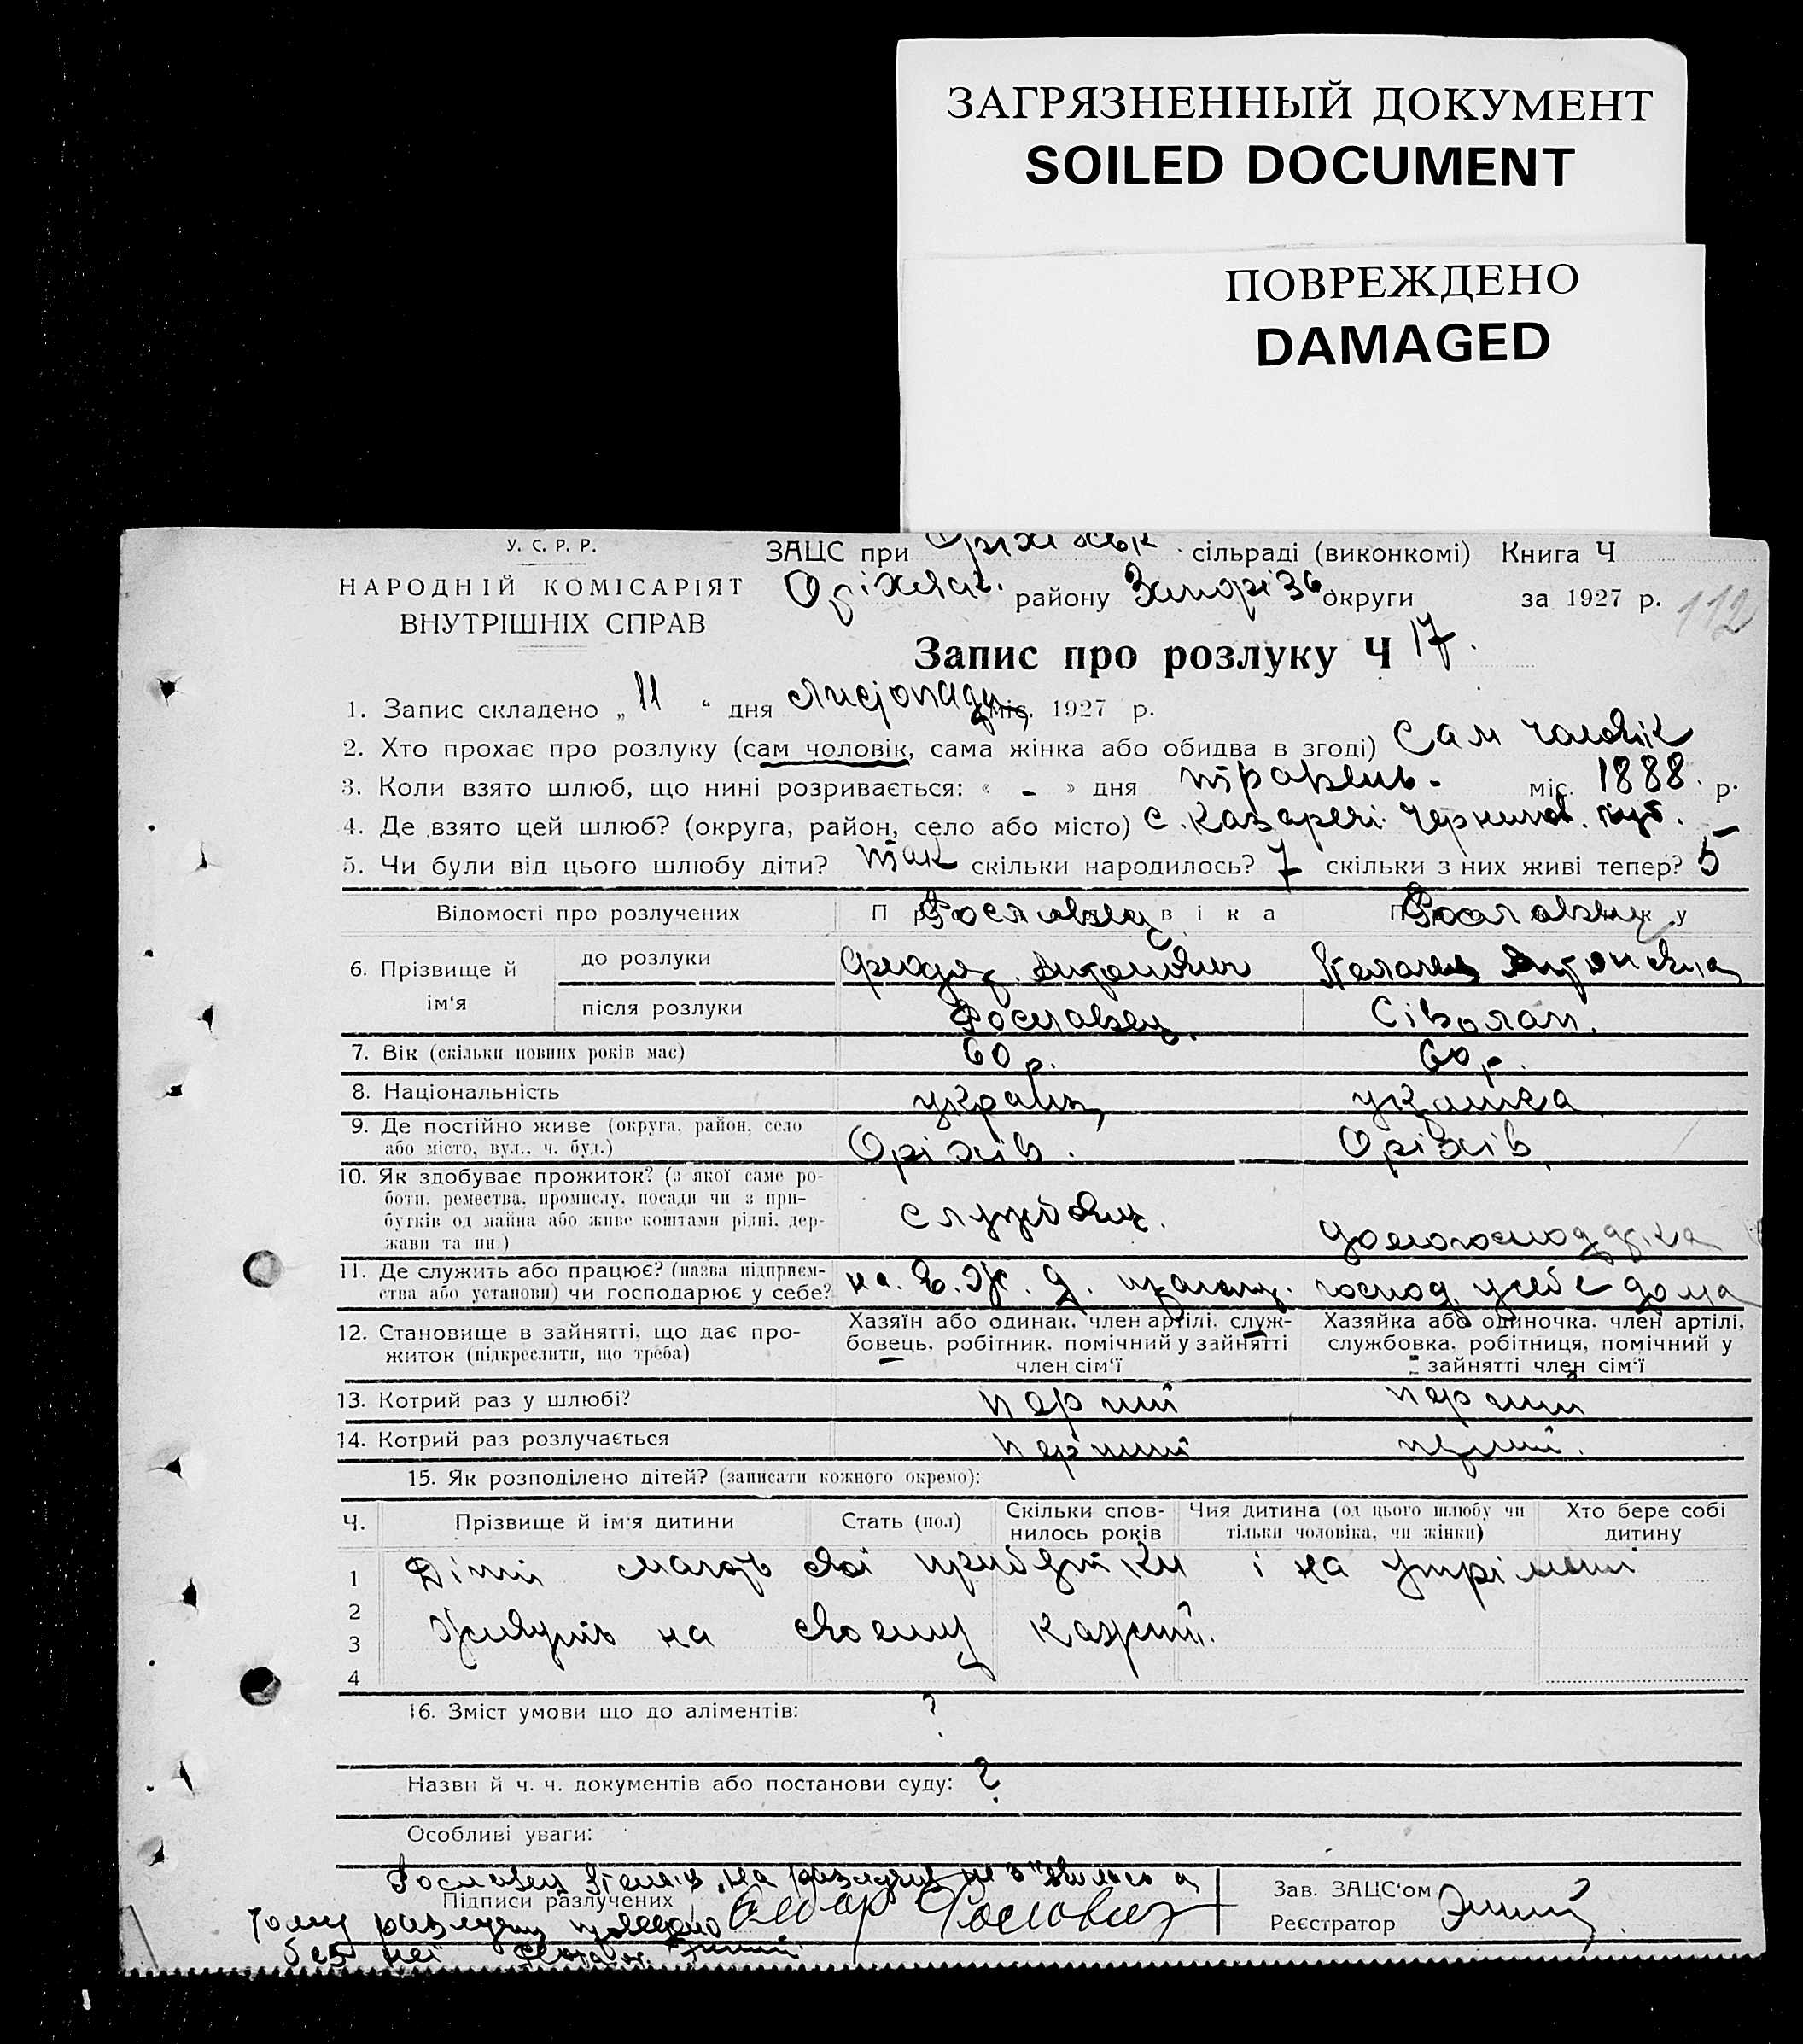 ЗАГРЯЗНЕННЫЙ ДОКУМЕНТ
SOILED DOCUMENT
ПОВРЕЖДЕНО
DAMAGED
У. С. Р. Р.
НАРОДНІЙ КОМІСАРІЯТ
ВНУТРІШНІХ СПРАВ
ЗАЦС при сільраді (виконкомі) Книга Ч
Оріхівск. району Запорізь округи за 1927 р.
112
Запис про розлуку Ч 17.
1. Запис складено „ 11 “ дня листопада міс. 1927 р.
2. Хто прохає про розлуку (сам чоловік, сама жінка або обидва в згоді) Сам чоловік
3. Коли взято шлюб, що нині розривається: « - » дня травень - міс. 1888 р.
4. Де взято цей шлюб? (округа, район, село або місто) с. губ.
5. Чи були від цього шлюбу діти? так скільки народилось? 7 скільки з них живі тепер? 5
Відомості про розлучених
Рославец Рославец
6. Прізвище й ім‘я
до розлуки Антонович Антоновна
після розлуки Рославец. Сіволап.
7. Вік (скільки повних років має) 60 р. 60 р.
8. Національність
9. Де постійно живе (округа, район, село
або місто, вул., ч. буд.) Оріхів. Оріхів
10. Як здобуває прожиток? (з якої саме ро-
боти, ремества, промислу, посади чи з при-
бутків од майна або живе коштами рідні, дер-
жави та ин.) службовец.
11. Де служить або працює? (назва підприєм-
ства або установи) чи господарює у себе? на. Е. Ж. Д. господ. у себе дома
12. Становище в зайнятті, що дає про-
житок (підкреслити, що треба)
Хазяїн або одинак, член артілі, служ-
бовець, робітник, помічний у зайнятті
член сім‘ї
Хазяйка або одиночка, член артілі,
службовка, робітниця, помічний у
зайнятті член сім‘ї
13. Котрий раз у шлюбі? перший перший
14. Котрий раз розлучається перший перший.
15. Як розподілено дітей? (записати кожного окремо):
Ч. Прізвище й ім‘я дитини Стать (пол) Скільки спов-
нилось років Чия дитина (од цього шлюбу чи
тільки чоловіка, чи жінки) Хто бере собі
дитину
1 Діти мають свої і на
2
3 Живуть на своему
4
16. Зміст умови що до аліментів: ?
Назви й ч. ч. документів або постанови суду: ?
Особливі уваги:
Рославец на не а
Підписи розлучених
Тому
без неї
Зав. ЗАЦС‘ом
Реєстратор